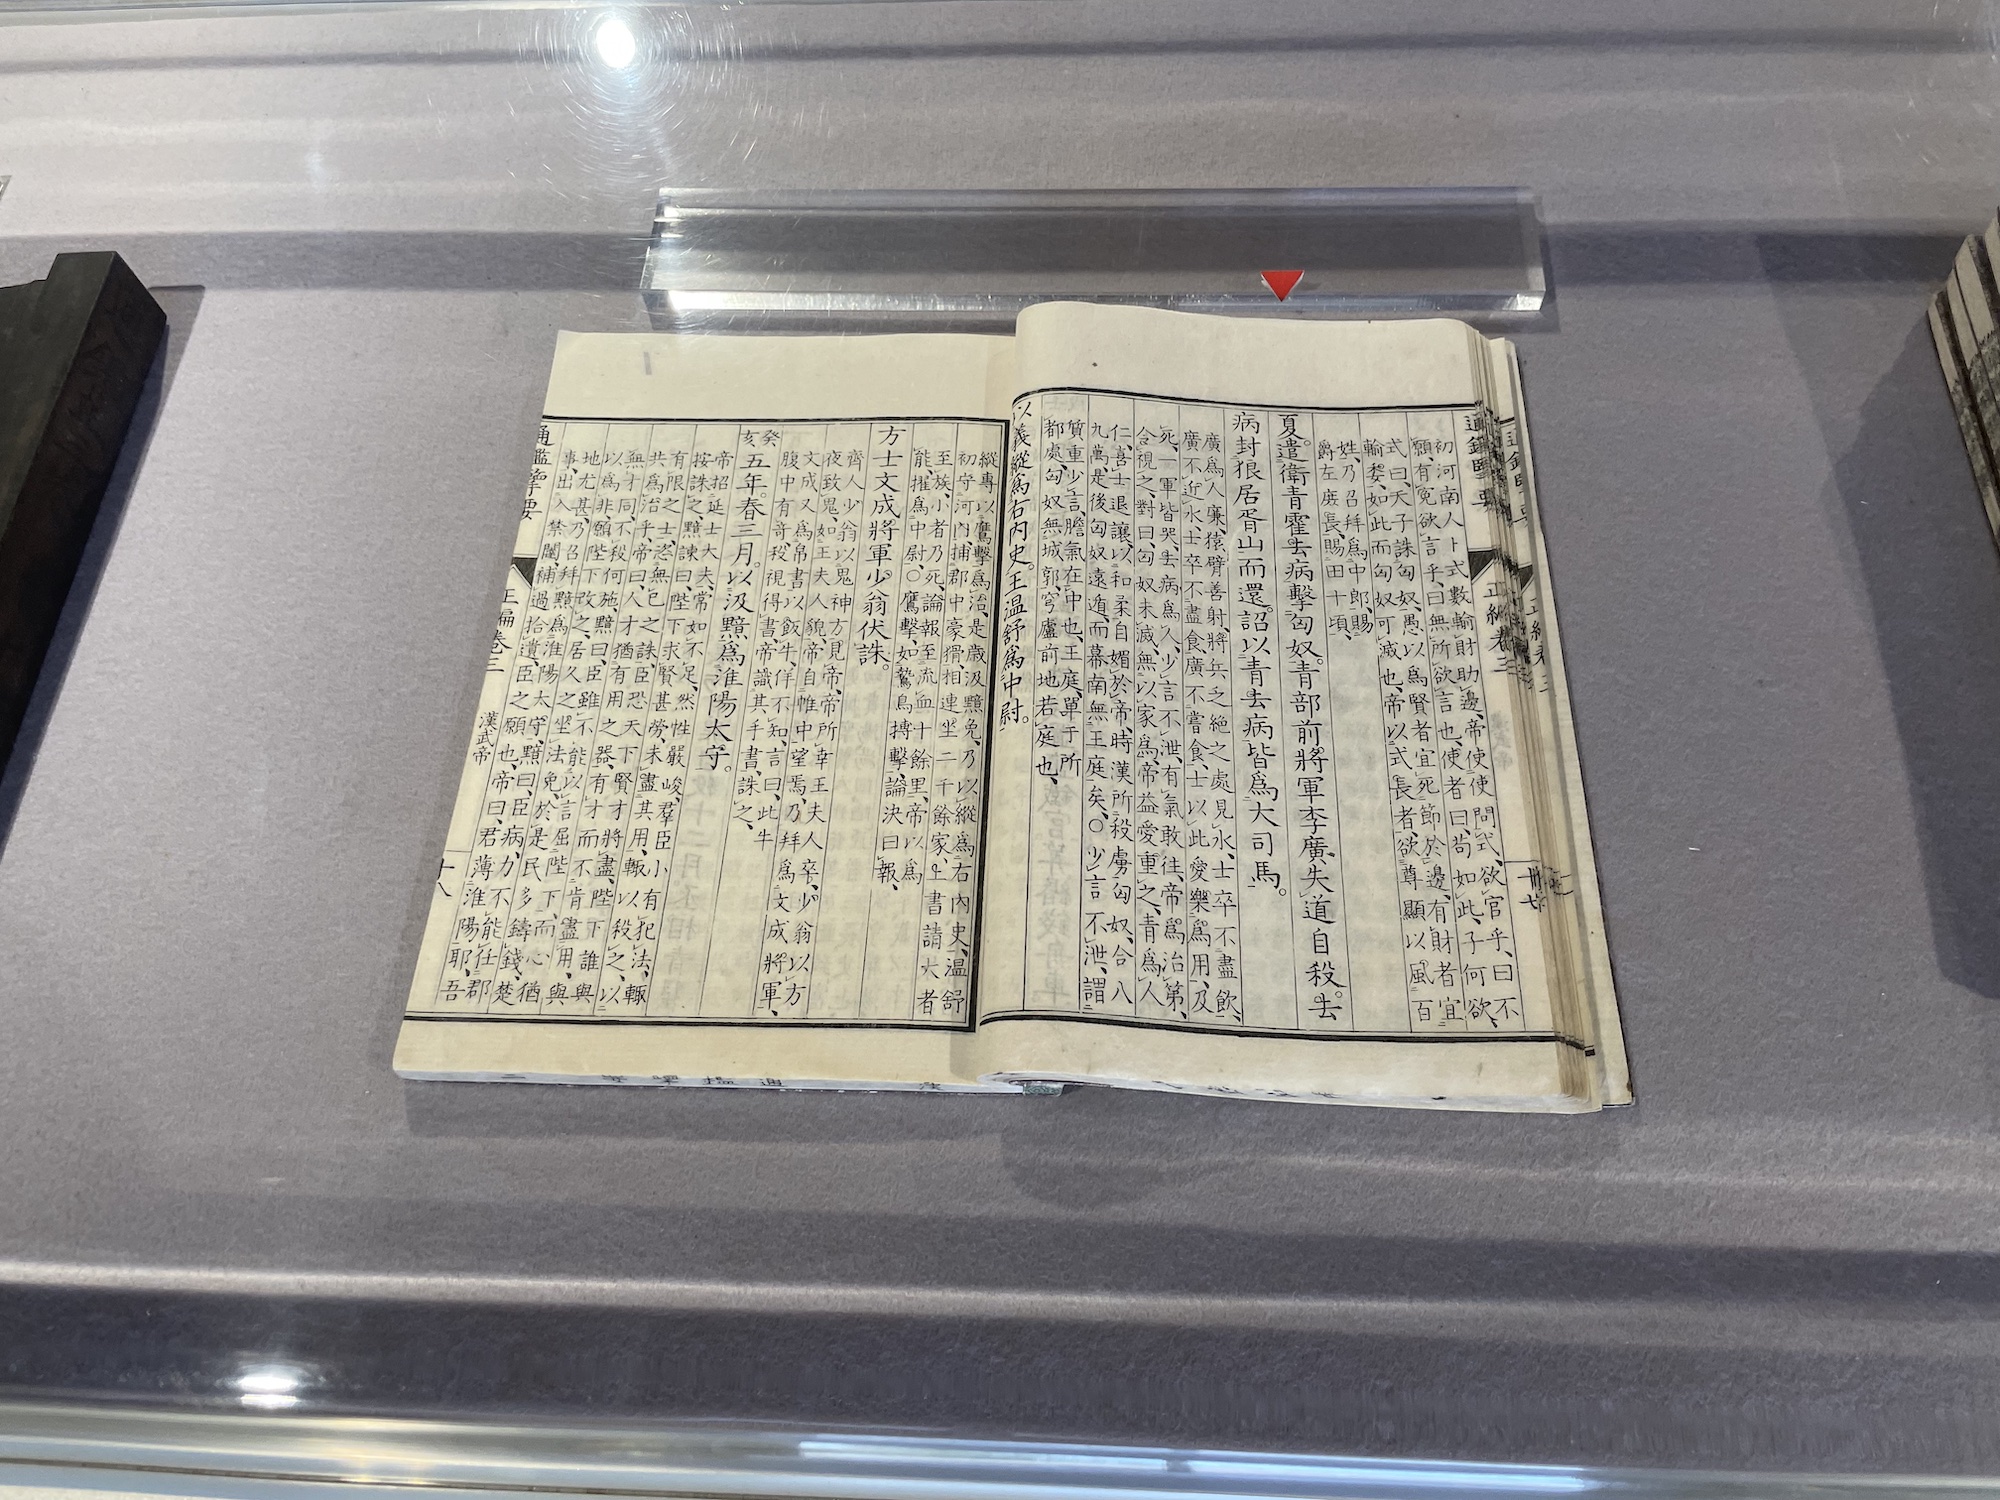 通鑑擥要 正編卷三
初河南人卜式數輸財助邊、帝使使問式、欲官乎、曰不
願有冤欲言乎、曰無所欲言也、使者曰、苟如此、子何欲、
式曰、天子誅匈奴、愚以爲賢者宜死節於邊、有財者宜
輸委、如此而匈奴可滅也、帝以式長者、欲尊顯以風百
姓、乃召拜爲中郎、賜
爵左庶長、賜田十頃、
夏。遣衛青霍去病擊匈奴。青部前將軍李廣失道自殺。去
病封狼居胥山而還。詔以青去病皆爲大司馬。
廣爲人廉、猿臂善射、將兵乏絕之處見水、士卒不盡飲、
廣不近水、士卒不盡食、廣不嘗食、士以此愛樂爲用、及
死、一軍皆哭、去病爲人、少言不泄、有氣敢往、帝爲治第、
令視之、對曰、匈奴未滅、無以家爲、帝益愛重之、青爲人
仁、喜士退讓、以和柔自媚於帝、時漢所殺虜匈奴、合八
九萬、是後匈奴遠遁、而幕南無王庭矣、〇少言不泄、謂
質重少言、膽氣在中也、王庭、單于所
都處、匈奴無城郭、穹廬前地若庭也、
以義縱爲右内史。王温舒爲中尉。
縱專以鷹擊爲治、是歲汲黯免、乃以縱爲右内史、温舒
初守河内、捕郡中豪猾、相連坐二千餘家、上書請大者
至族、小者乃死、論報至流血十餘里、帝以爲
能、擢爲中尉、〇鷹擊、如鷙鳥搏擊、論決曰報、
方士文成將軍少翁伏誅。
齊人少翁以鬼神方見帝、帝所幸王夫人卒、少翁以方
夜致鬼、如王夫人貌、帝自帷中望焉、乃拜爲文成將軍、
文成又爲帛書以飯牛、佯不知、言曰、此牛
腹中有奇、殺視得書、帝識其手書、誅之、
癸亥五年。春三月。以汲黯爲淮陽太守。
帝招延士大夫、常如不足、然性嚴峻、羣臣小有犯法、輒
按誅之、黯諫曰、陛下求賢甚勞、未盡其用、輒以殺之、以
有限之士、恣無已之誅、臣恐天下賢才將盡、陛下誰與
共爲治乎、帝曰、人才猶有用之器、有才而不肯盡用、與
無才同、不殺何施、黯曰、臣雖不能以言屈陛下、而心猶
以爲非、願陛下改之、居久之、坐法免、於是民多鑄錢、楚
地尤甚、乃召拜黯爲淮陽太守、黯曰、臣病、力不能任郡
事、出入禁闥、補過拾遺、臣之願也、帝曰、君薄淮陽耶、吾
通鑑擥要 正編卷三 漢武帝 十八
通鑑擥要